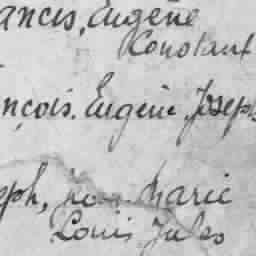 ancis, Eugène
Constant
nçois. Eugène Joseph
eph, Jean Marie
Louis Jules